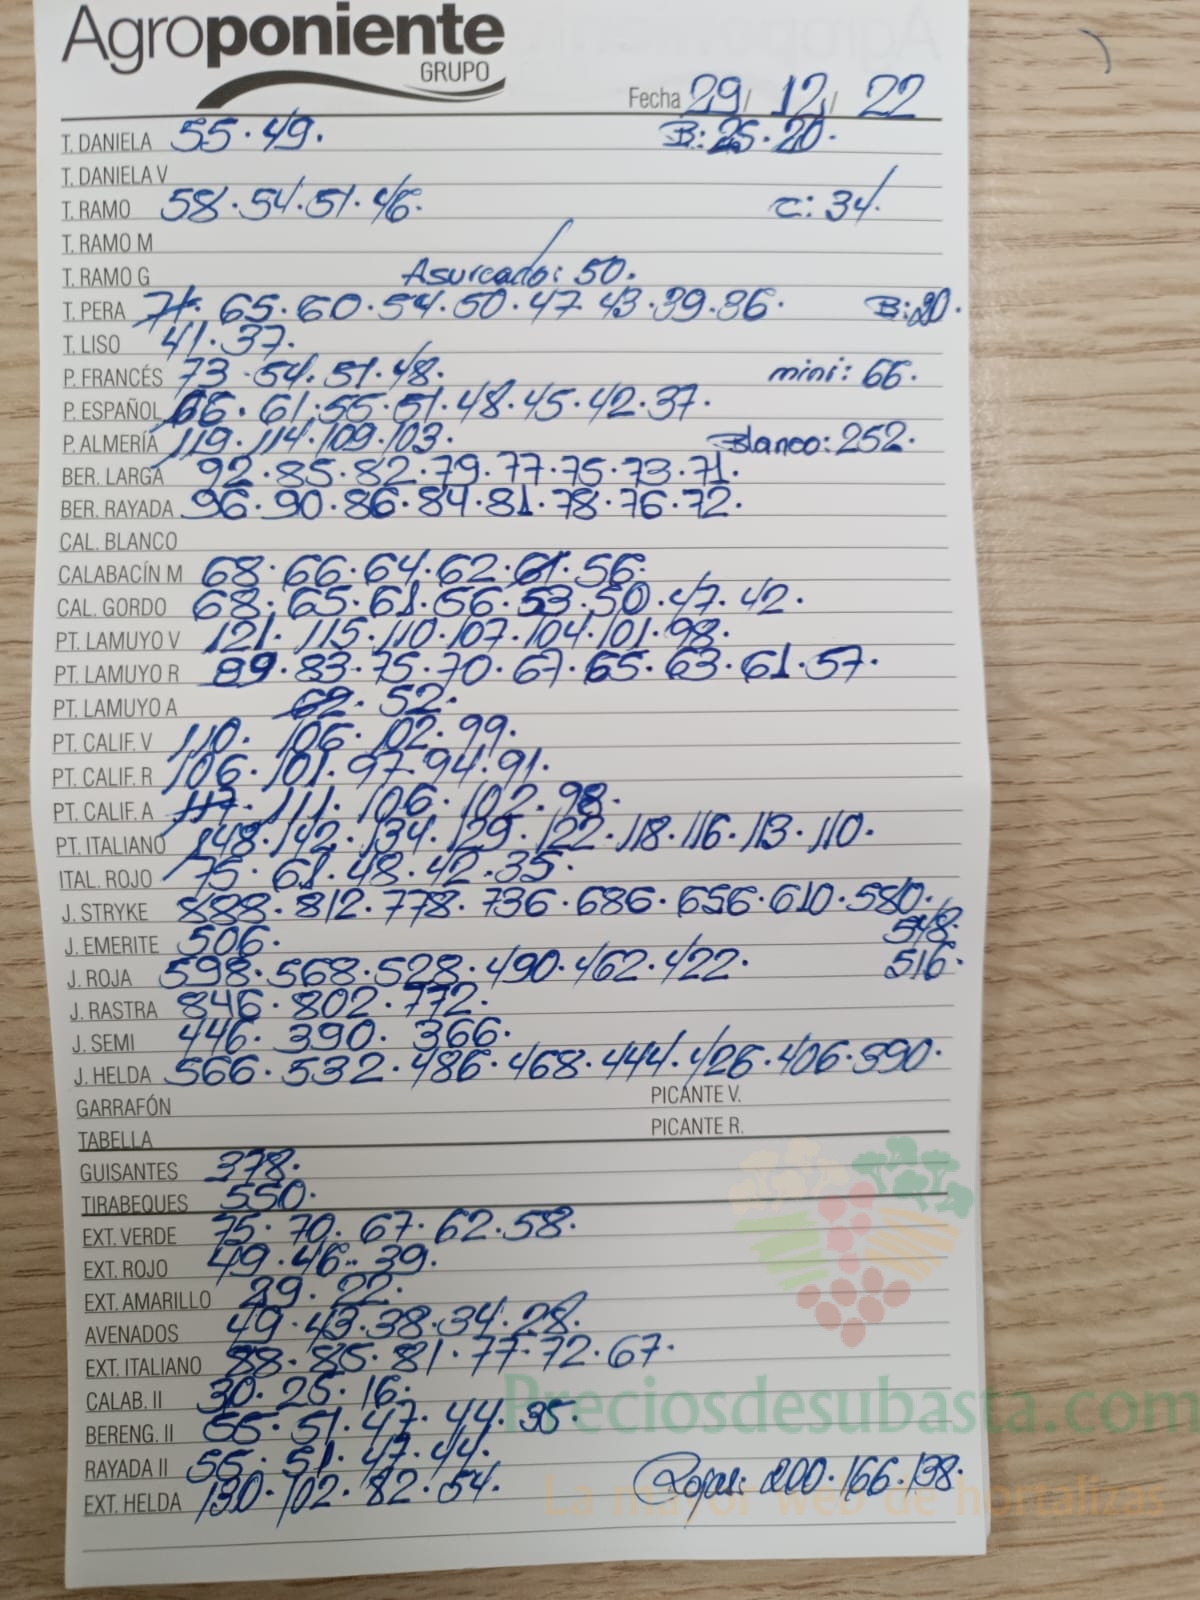 Agroponiente
GRUPO
Fecha 29 / 12 / 22
T. DANIELA 55 · 49 · B: 25 · 20 ·
T. DANIELA V
T. RAMO 58 · 54 · 51 · 46 · C: 34 ·
T. RAMO M
T. RAMO G Asurcado: 50 ·
T. PERA 71 · 65 · 60 · 54 · 50 · 47 · 43 · 39 · 36 · B: 20 ·
T. LISO 41 · 37 ·
P. FRANCÉS 73 · 54 · 51 · 48 · mini: 66 ·
P. ESPAÑOL 66 · 61 · 55 · 51 · 48 · 45 · 42 · 37 ·
P. ALMERÍA 119 · 114 · 109 · 103 · Blanco: 252 ·
BER. LARGA 92 · 85 · 82 · 79 · 77 · 75 · 73 · 71 ·
BER. RAYADA 96 · 90 · 86 · 84 · 81 · 78 · 76 · 72 ·
CAL. BLANCO
CALABACÍN M 68 · 66 · 64 · 62 · 61 · 56 ·
CAL. GORDO 68 · 65 · 61 · 56 · 53 · 50 · 47 · 42 ·
PT. LAMUYO V 121 · 115 · 110 · 107 · 104 · 101 · 98 ·
PT. LAMUYO R 89 · 83 · 75 · 70 · 67 · 65 · 63 · 61 · 57 ·
PT. LAMUYO A 62 · 52 ·
PT. CALIF. V 110 · 106 · 102 · 99 ·
PT. CALIF. R 106 · 101 · 97 · 94 · 91 ·
PT. CALIF. A 117 · 111 · 106 · 102 · 98 ·
PT. ITALIANO 148 · 142 · 134 · 129 · 122 · 118 · 116 · 113 · 110 ·
ITAL. ROJO 75 · 61 · 48 · 42 · 35 ·
J. STRYKE 888 · 812 · 778 · 736 · 686 · 656 · 610 · 580 ·
J. EMERITE 506 · 548 ·
J. ROJA 598 · 568 · 528 · 490 · 462 · 422 · 516 ·
J. RASTRA 846 · 802 · 772 ·
J. SEMI 446 · 390 · 366 ·
J. HELDA 566 · 532 · 486 · 468 · 444 · 426 · 406 · 390 ·
GARRAFÓN PICANTE V.
TABELLA PICANTE R.
GUISANTES 378 ·
TIRABEQUES 550 ·
EXT. VERDE 75 · 70 · 67 · 62 · 58 ·
EXT. ROJO 49 · 46 · 39 ·
EXT. AMARILLO 29 · 22 ·
AVENADOS 49 · 43 · 38 · 34 · 28 ·
EXT. ITALIANO 88 · 85 · 81 · 77 · 72 · 67 ·
CALAB. II 30 · 25 · 16 ·
Preciosdesubasta.com
BERENG. II 55 · 51 · 47 · 44 · 35 ·
RAYADA II 55 · 51 · 47 · 44 ·
EXT. HELDA 130 · 102 · 82 · 54 · Rojas: 200 · 166 · 138 ·
La mayor web de hortalizas